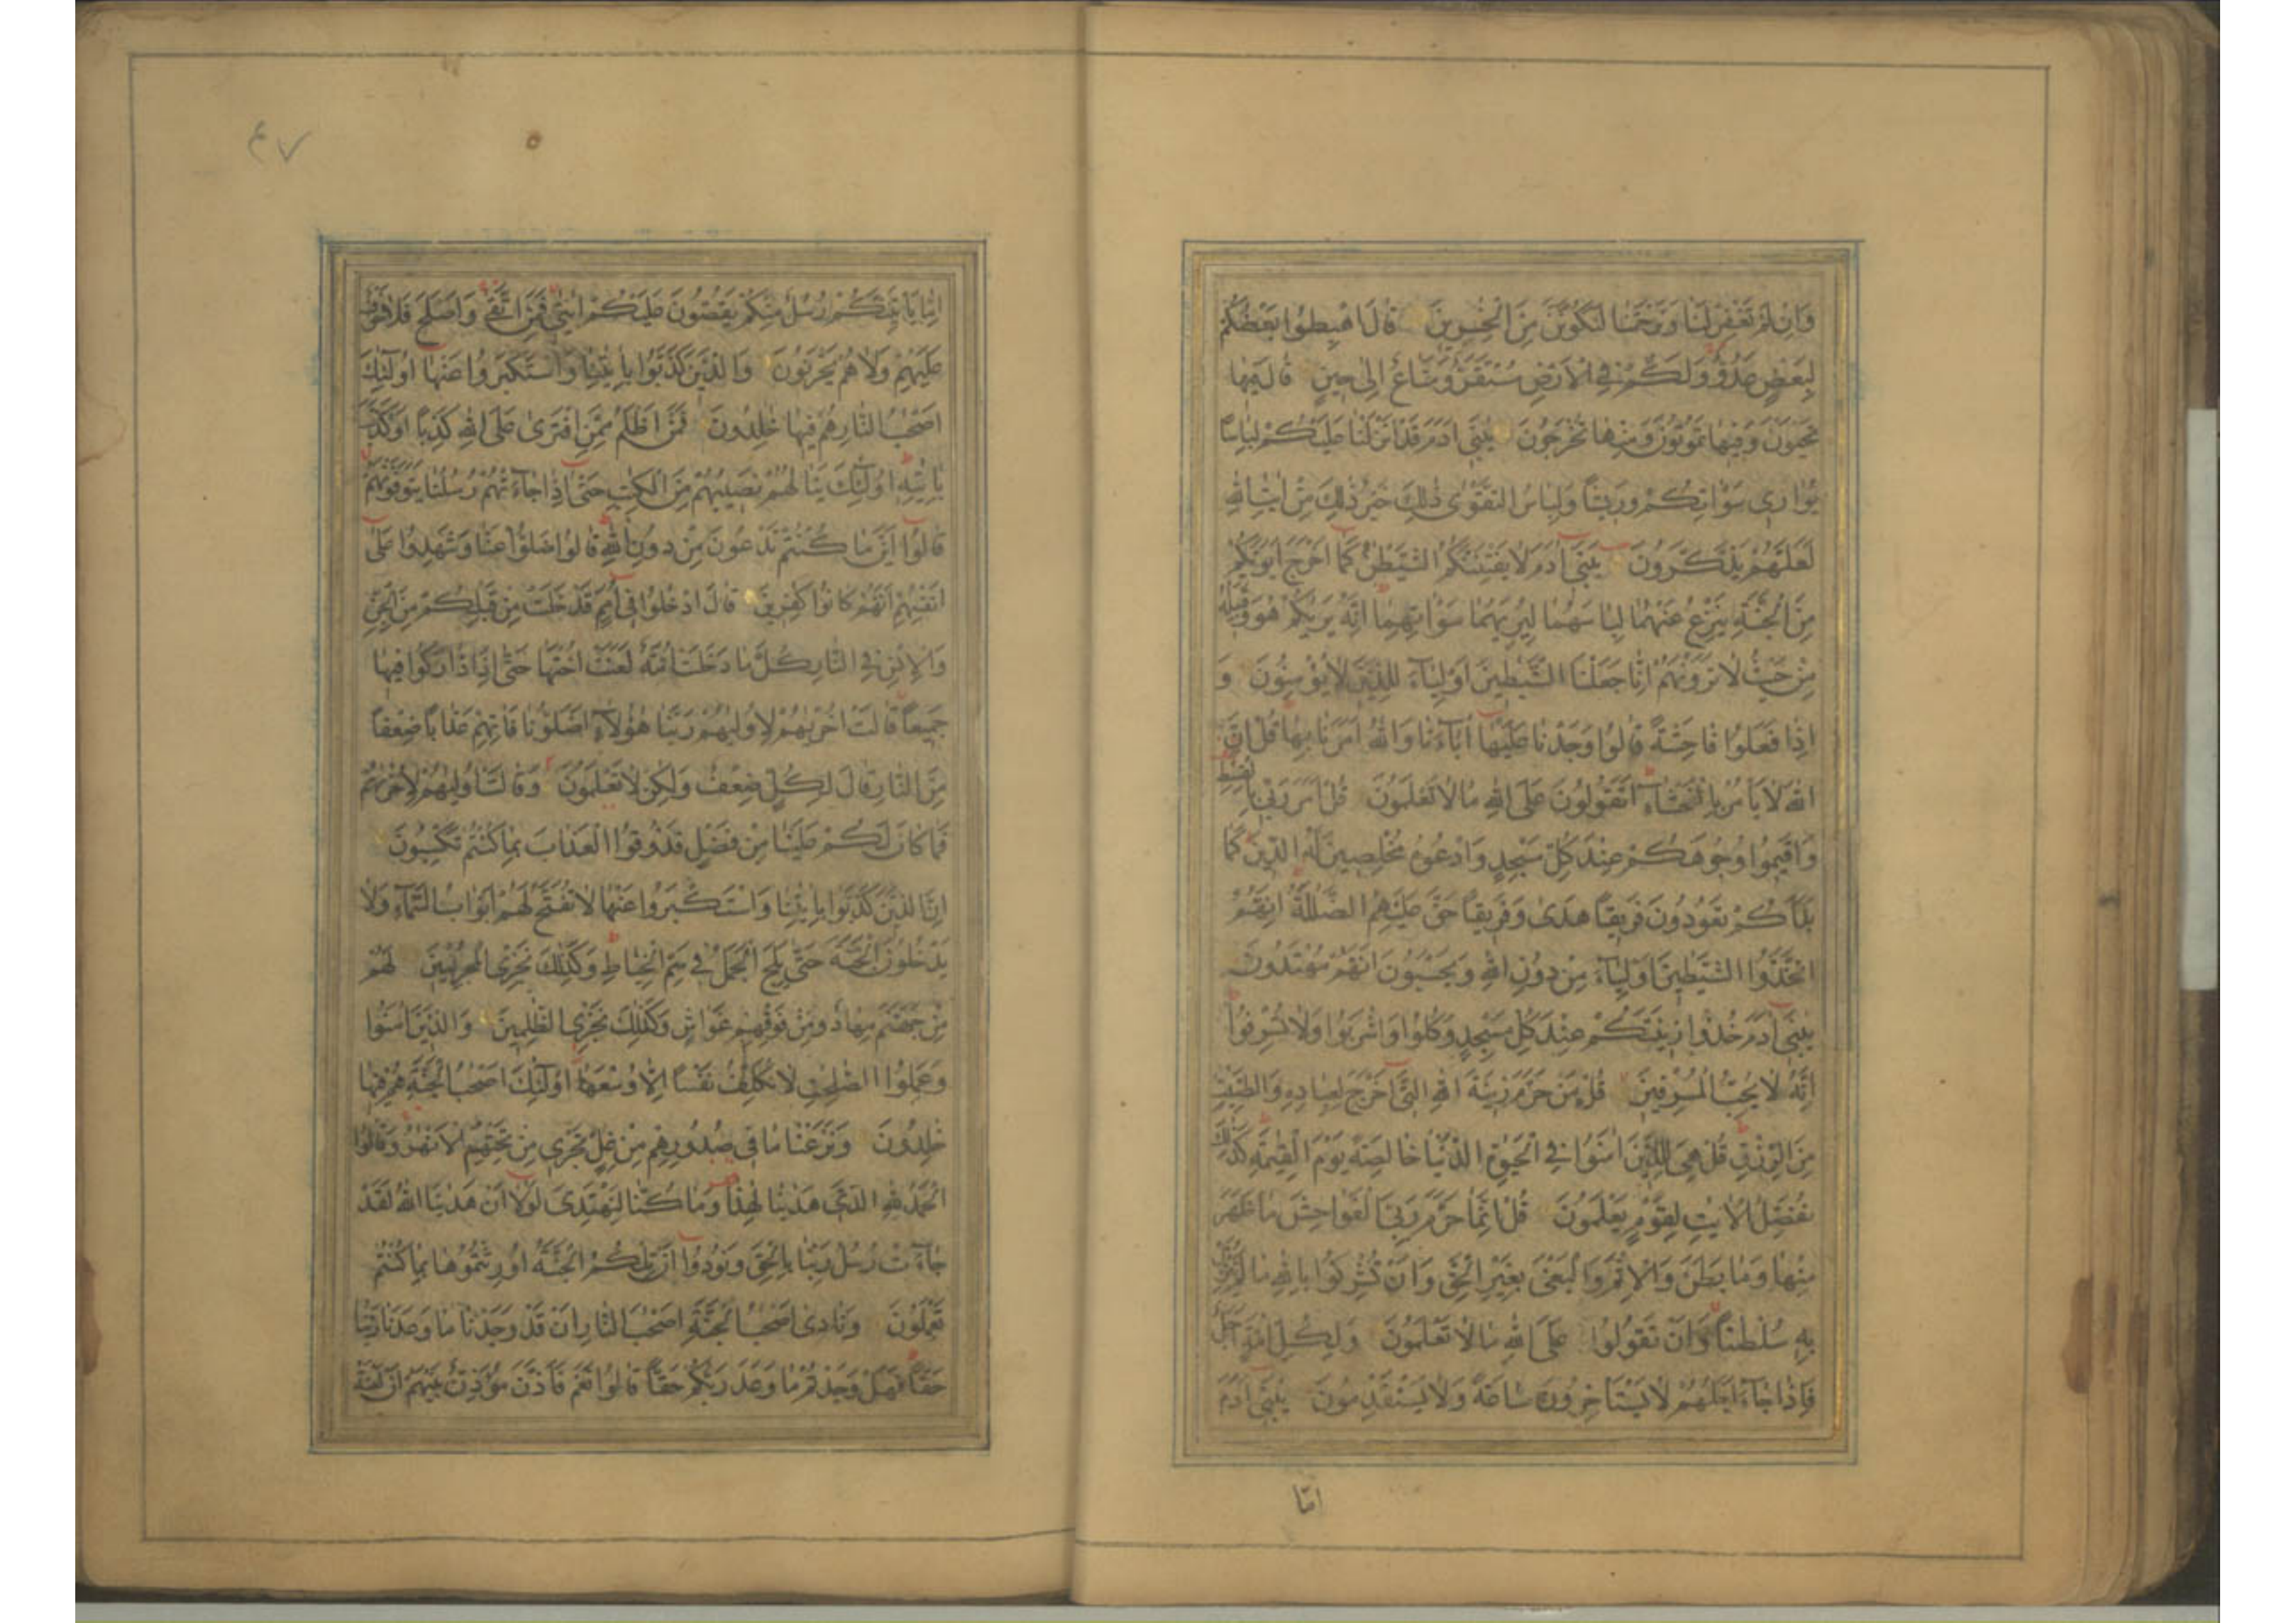 وَاِنْ لَمْ تَغْفِرْ لَنَا وَتَرْحَمْنَا لَنَكُونَنَّ مِنَ الْخٰسِرِينَ قَالَ اهْبِطُوا بَعْضُكُمْ
لِبَعْضٍ عَدُوٌّ وَلَكُمْ فِي الْاَرْضِ مُسْتَقَرٌّ وَمَتَاعٌ اِلٰى حِينٍ قَالَ فِيهَا
تَحْيَوْنَ وَفِيهَا تَمُوتُونَ وَمِنْهَا تُخْرَجُونَ يٰبَنِي اٰدَمَ قَدْ اَنْزَلْنَا عَلَيْكُمْ لِبَاسًا
يُوَارِي سَوْاٰتِكُمْ وَرِيشًا وَلِبَاسُ التَّقْوٰى ذٰلِكَ خَيْرٌ ذٰلِكَ مِنْ اٰيٰتِ اللّٰهِ
لَعَلَّهُمْ يَذَّكَّرُونَ يٰبَنِي اٰدَمَ لَا يَفْتِنَنَّكُمُ الشَّيْطٰنُ كَمَا اَخْرَجَ اَبَوَيْكُمْ
مِنَ الْجَنَّةِ يَنْزِعُ عَنْهُمَا لِبَاسَهُمَا لِيُرِيَهُمَا سَوْاٰتِهِمَا اِنَّهُ يَرٰيكُمْ هُوَ وَقَبِيلُهُ
مِنْ حَيْثُ لَا تَرَوْنَهُمْ اِنَّا جَعَلْنَا الشَّيٰطِينَ اَوْلِيَاءَ لِلَّذِينَ لَا يُؤْمِنُونَ وَ
اِذَا فَعَلُوا فَاحِشَةً قَالُوا وَجَدْنَا عَلَيْهَا اٰبَاءَنَا وَاللّٰهُ اَمَرَنَا بِهَا قُلْ اِنَّ
اللّٰهَ لَا يَأْمُرُ بِالْفَحْشَاءِ اَتَقُولُونَ عَلَى اللّٰهِ مَا لَا تَعْلَمُونَ قُلْ اَمَرَ رَبِّي بِالْقِسْطِ
وَاَقِيمُوا وُجُوهَكُمْ عِنْدَ كُلِّ مَسْجِدٍ وَادْعُوهُ مُخْلِصِينَ لَهُ الدِّينَ كَمَا
بَدَاَكُمْ تَعُودُونَ فَرِيقًا هَدٰى وَفَرِيقًا حَقَّ عَلَيْهِمُ الضَّلٰلَةُ اِنَّهُمُ
اتَّخَذُوا الشَّيٰطِينَ اَوْلِيَاءَ مِنْ دُونِ اللّٰهِ وَيَحْسَبُونَ اَنَّهُمْ مُهْتَدُونَ
يٰبَنِي اٰدَمَ خُذُوا زِينَتَكُمْ عِنْدَ كُلِّ مَسْجِدٍ وَكُلُوا وَاشْرَبُوا وَلَا تُسْرِفُوا
اِنَّهُ لَا يُحِبُّ الْمُسْرِفِينَ قُلْ مَنْ حَرَّمَ زِينَةَ اللّٰهِ الَّتِي اَخْرَجَ لِعِبَادِهِ وَالطَّيِّبٰتِ
مِنَ الرِّزْقِ قُلْ هِيَ لِلَّذِينَ اٰمَنُوا فِي الْحَيٰوةِ الدُّنْيَا خَالِصَةً يَوْمَ الْقِيٰمَةِ كَذٰلِكَ
نُفَصِّلُ الْاٰيٰتِ لِقَوْمٍ يَعْلَمُونَ قُلْ اِنَّمَا حَرَّمَ رَبِّيَ الْفَوَاحِشَ مَا ظَهَرَ
مِنْهَا وَمَا بَطَنَ وَالْاِثْمَ وَالْبَغْيَ بِغَيْرِ الْحَقِّ وَاَنْ تُشْرِكُوا بِاللّٰهِ مَا لَمْ يُنَزِّلْ
بِهِ سُلْطٰنًا وَاَنْ تَقُولُوا عَلَى اللّٰهِ مَا لَا تَعْلَمُونَ وَلِكُلِّ اُمَّةٍ اَجَلٌ
فَاِذَا جَاءَ اَجَلُهُمْ لَا يَسْتَأْخِرُونَ سَاعَةً وَلَا يَسْتَقْدِمُونَ يٰبَنِي اٰدَمَ
امّا
٤٧
اِمَّا يَأْتِيَنَّكُمْ رُسُلٌ مِنْكُمْ يَقُصُّونَ عَلَيْكُمْ اٰيٰتِي فَمَنِ اتَّقٰى وَاَصْلَحَ فَلَا خَوْفٌ
عَلَيْهِمْ وَلَا هُمْ يَحْزَنُونَ وَالَّذِينَ كَذَّبُوا بِاٰيٰتِنَا وَاسْتَكْبَرُوا عَنْهَا اُولٰئِكَ
اَصْحٰبُ النَّارِ هُمْ فِيهَا خٰلِدُونَ فَمَنْ اَظْلَمُ مِمَّنِ افْتَرٰى عَلَى اللّٰهِ كَذِبًا اَوْ كَذَّبَ
بِاٰيٰتِهِ اُولٰئِكَ يَنَالُهُمْ نَصِيبُهُمْ مِنَ الْكِتٰبِ حَتّٰى اِذَا جَاءَتْهُمْ رُسُلُنَا يَتَوَفَّوْنَهُمْ
قَالُوا اَيْنَ مَا كُنْتُمْ تَدْعُونَ مِنْ دُونِ اللّٰهِ قَالُوا ضَلُّوا عَنَّا وَشَهِدُوا عَلٰى
اَنْفُسِهِمْ اَنَّهُمْ كَانُوا كٰفِرِينَ قَالَ ادْخُلُوا فِي اُمَمٍ قَدْ خَلَتْ مِنْ قَبْلِكُمْ مِنَ الْجِنِّ
وَالْاِنْسِ فِي النَّارِ كُلَّمَا دَخَلَتْ اُمَّةٌ لَعَنَتْ اُخْتَهَا حَتّٰى اِذَا ادَّارَكُوا فِيهَا
جَمِيعًا قَالَتْ اُخْرٰيهُمْ لِاُولٰيهُمْ رَبَّنَا هٰؤُلَاءِ اَضَلُّونَا فَاٰتِهِمْ عَذَابًا ضِعْفًا
مِنَ النَّارِ قَالَ لِكُلٍّ ضِعْفٌ وَلٰكِنْ لَا تَعْلَمُونَ وَقَالَتْ اُولٰيهُمْ لِاُخْرٰيهُمْ
فَمَا كَانَ لَكُمْ عَلَيْنَا مِنْ فَضْلٍ فَذُوقُوا الْعَذَابَ بِمَا كُنْتُمْ تَكْسِبُونَ
اِنَّ الَّذِينَ كَذَّبُوا بِاٰيٰتِنَا وَاسْتَكْبَرُوا عَنْهَا لَا تُفَتَّحُ لَهُمْ اَبْوَابُ السَّمَاءِ وَلَا
يَدْخُلُونَ الْجَنَّةَ حَتّٰى يَلِجَ الْجَمَلُ فِي سَمِّ الْخِيَاطِ وَكَذٰلِكَ نَجْزِي الْمُجْرِمِينَ لَهُمْ
مِنْ جَهَنَّمَ مِهَادٌ وَمِنْ فَوْقِهِمْ غَوَاشٍ وَكَذٰلِكَ نَجْزِي الظّٰلِمِينَ وَالَّذِينَ اٰمَنُوا
وَعَمِلُوا الصّٰلِحٰتِ لَا نُكَلِّفُ نَفْسًا اِلَّا وُسْعَهَا اُولٰئِكَ اَصْحٰبُ الْجَنَّةِ هُمْ فِيهَا
خٰلِدُونَ وَنَزَعْنَا مَا فِي صُدُورِهِمْ مِنْ غِلٍّ تَجْرِي مِنْ تَحْتِهِمُ الْاَنْهٰرُ وَقَالُوا
الْحَمْدُ لِلّٰهِ الَّذِي هَدٰينَا لِهٰذَا وَمَا كُنَّا لِنَهْتَدِيَ لَوْلَا اَنْ هَدٰينَا اللّٰهُ لَقَدْ
جَاءَتْ رُسُلُ رَبِّنَا بِالْحَقِّ وَنُودُوا اَنْ تِلْكُمُ الْجَنَّةُ اُورِثْتُمُوهَا بِمَا كُنْتُمْ
تَعْمَلُونَ وَنَادٰى اَصْحٰبُ الْجَنَّةِ اَصْحٰبَ النَّارِ اَنْ قَدْ وَجَدْنَا مَا وَعَدَنَا رَبُّنَا
حَقًّا فَهَلْ وَجَدْتُمْ مَا وَعَدَ رَبُّكُمْ حَقًّا قَالُوا نَعَمْ فَاَذَّنَ مُؤَذِّنٌ بَيْنَهُمْ اَنْ لَعْنَةُ